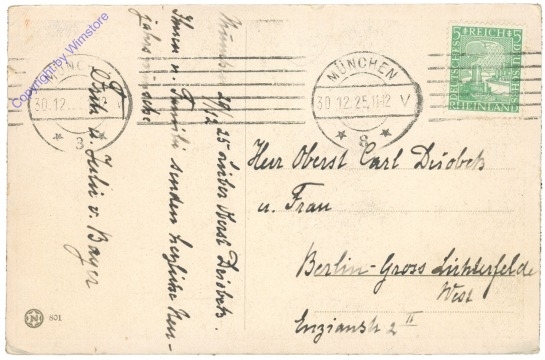 München 29/12 25 Lieber Oberst Diobek.
Ihnen u. Familie senden herzliche Neu-
jahrswünsche
u. Julie v. Bayer
Copyright by Wimstore
MÜNCHEN
30.12.
8
MÜNCHEN
30.12.25.11-12 V
8
5 REICH 5
DEUTSCHES
DEUTSCHES
RHEINLAND
Herr Oberst Carl
u. Frau
Berlin-Gross Lichterfelde
West
Enzianstr 2 II
N 801